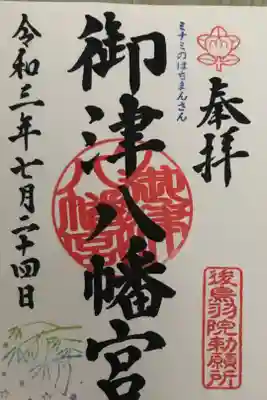 奉拝
ミナミのはちまんさん
御津八幡宮
令和三年七月二十四日
後鳥羽院勅願所